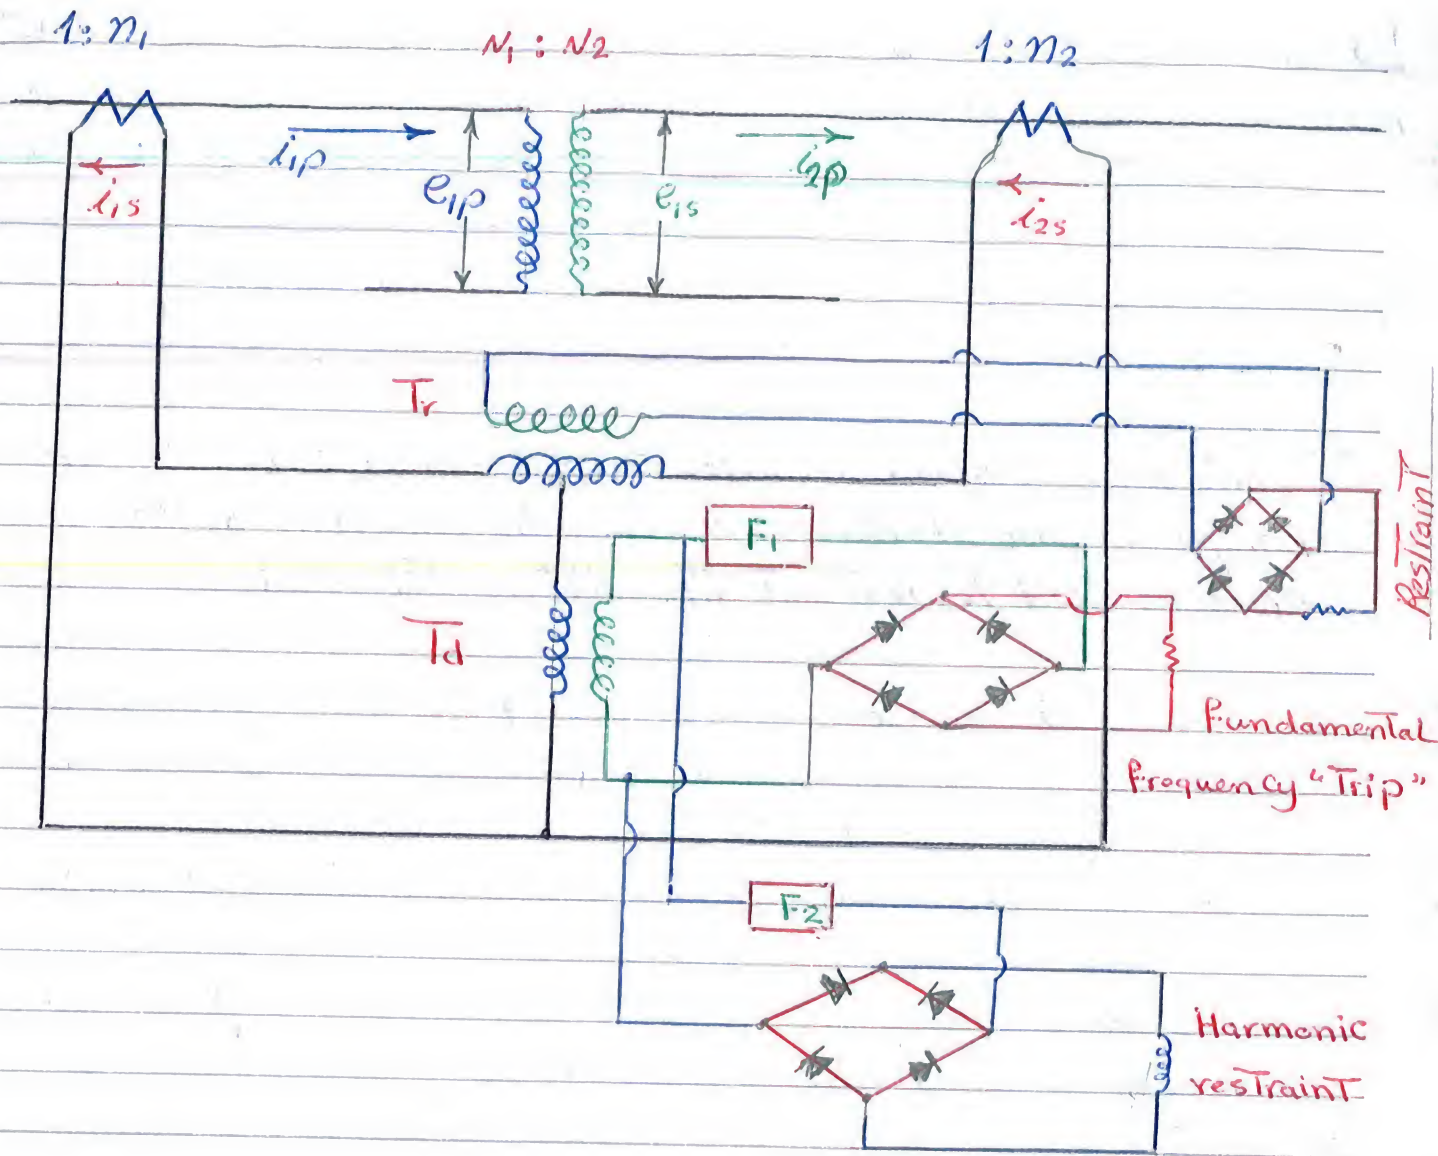 1:n1
N1 : N2
1:n2
i1p
i2p
i1s
e1p
e1s
i2s
Tr
F1
Restraint
Td
Fundamental
frequency "Trip"
F2
Harmonic
restraint